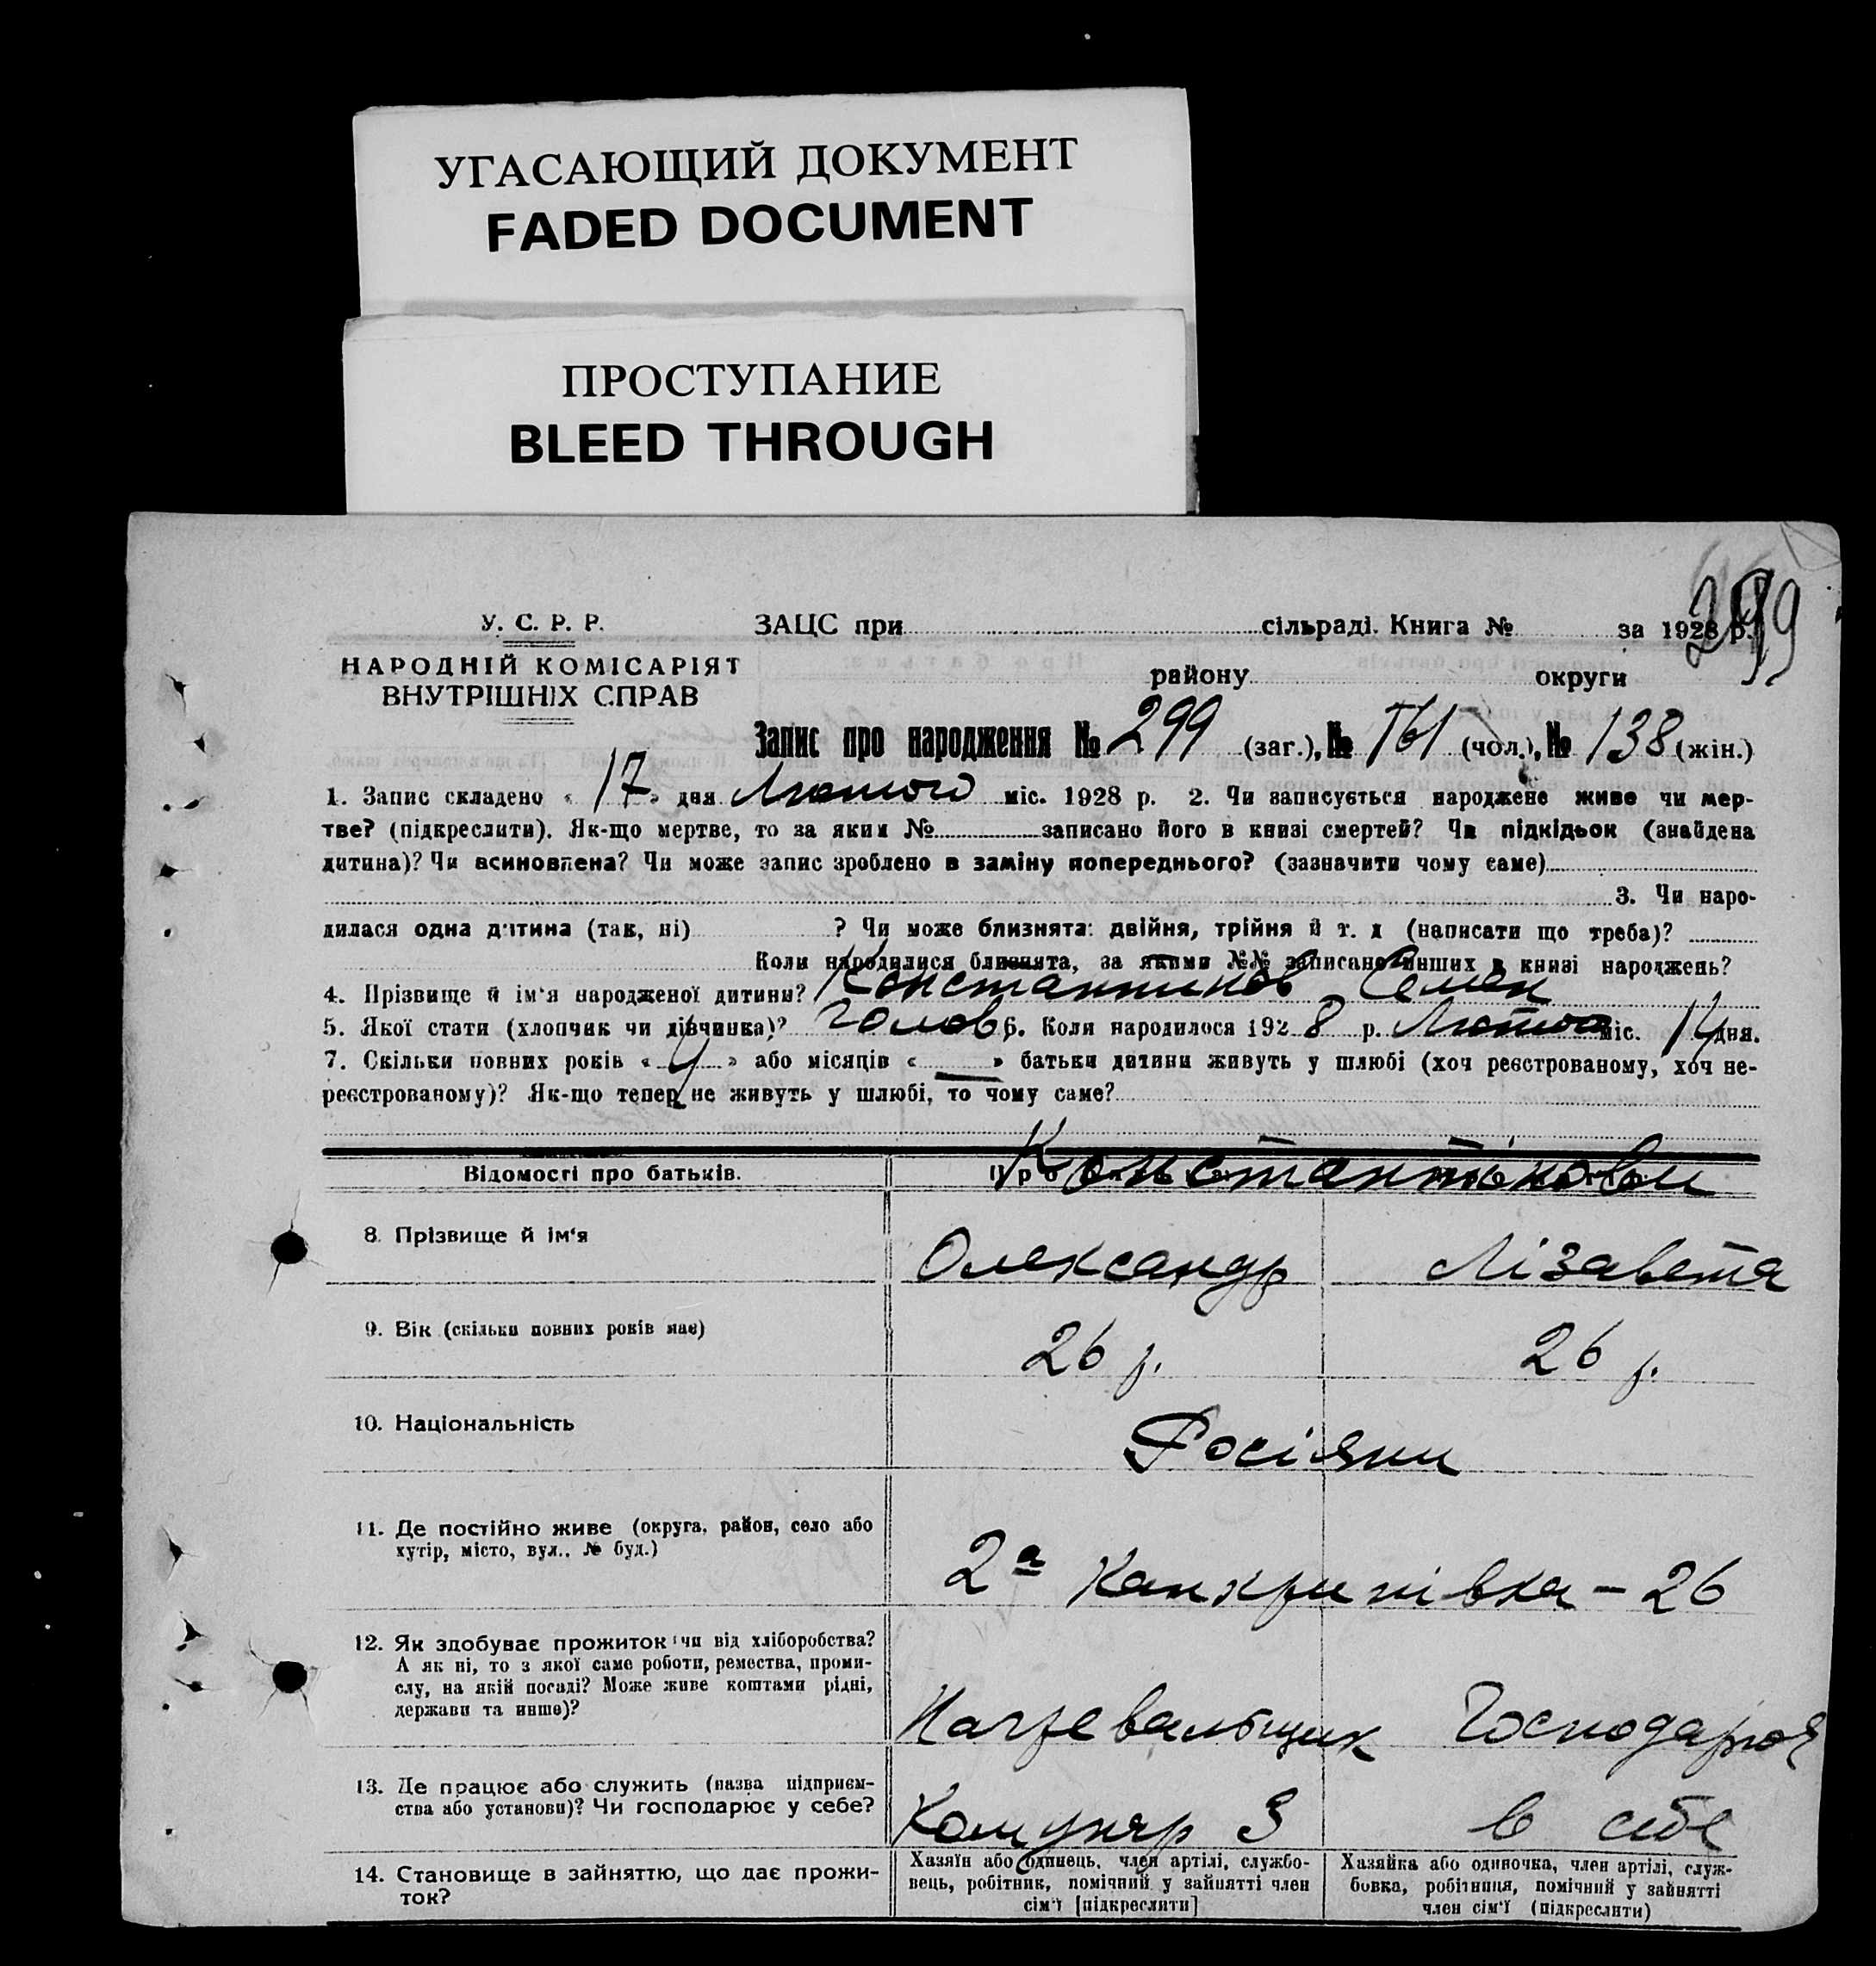 УГАСАЮЩИЙ ДОКУМЕНТ
FADED DOCUMENT
ПРОСТУПАНИЕ
BLEED THROUGH
299
У. С. Р. Р.
НАРОДНІЙ КОМІСАРІЯТ
ВНУТРІШНІХ СПРАВ
ЗАЦС при сільраді. Книга № за 1928 р.
району округи
Запис про народження № 299 (заг.), № 161 (чол.), № 138 (жін.)
1. Запис складено « 17 » дня Лютого міс. 1928 р. 2. Чи записується народжене живе чи мер-
тве? (підкреслити). Як-що мертве, то за яким № записано його в книзі смертей? Чи підкідьок (знайдена
дитина)? Чи всиновлена? Чи може запис зроблено в заміну попереднього? (зазначити чому саме)
3. Чи наро-
дилася одна дитина (так, ні) ? Чи може близнята: двійня, трійня й т. д (написати що треба)?
Коли народилися близнята, за якими №№ записано инших в книзі народжень?
4. Прізвище й ім'я народженої дитини? Константинов Семен
5. Якої стати (хлопчик чи дівчинка)? Голов 6. Коли народилося 1928 р. Лютого міс. 14 дня.
7. Скільки повних років « 4 » або місяців « — » батьки дитини живуть у шлюбі (хоч реєстрованому, хоч не-
реєстрованому)? Як-що тепер не живуть у шлюбі, то чому саме?
Відомості про батьків.
Константінови
8. Прізвище й ім'я
Олександр Лізавета
9. Вік (скільки повних років має)
26 р. 26 р.
10. Національність
Росіяни
11. Де постійно живе (округа, район, село або
хутір, місто, вул.. № буд.)
2а Канкринівка – 26
12. Як здобуває прожиток чи від хліборобства?
А як ні, то з якої саме роботи, ремества, проми-
слу, на якій посаді? Може живе коштами рідні,
держави та инше)?
Нагревальщик Господарює
13. Де працює або служить (назва підприєм-
ства або установи)? Чи господарює у себе?
Комунар З в себе
14. Становище в зайняттю, що дає прожи-
ток?
Хазяїн або одинець, член артілі, службо-
вець, робітник, помічний у зайнятті член
сім'ї [підкреслити]
Хазяйка або одиночка, член артілі, служ-
бовка, робітниця, помічний у зайнятті
член сім'ї (підкреслити)